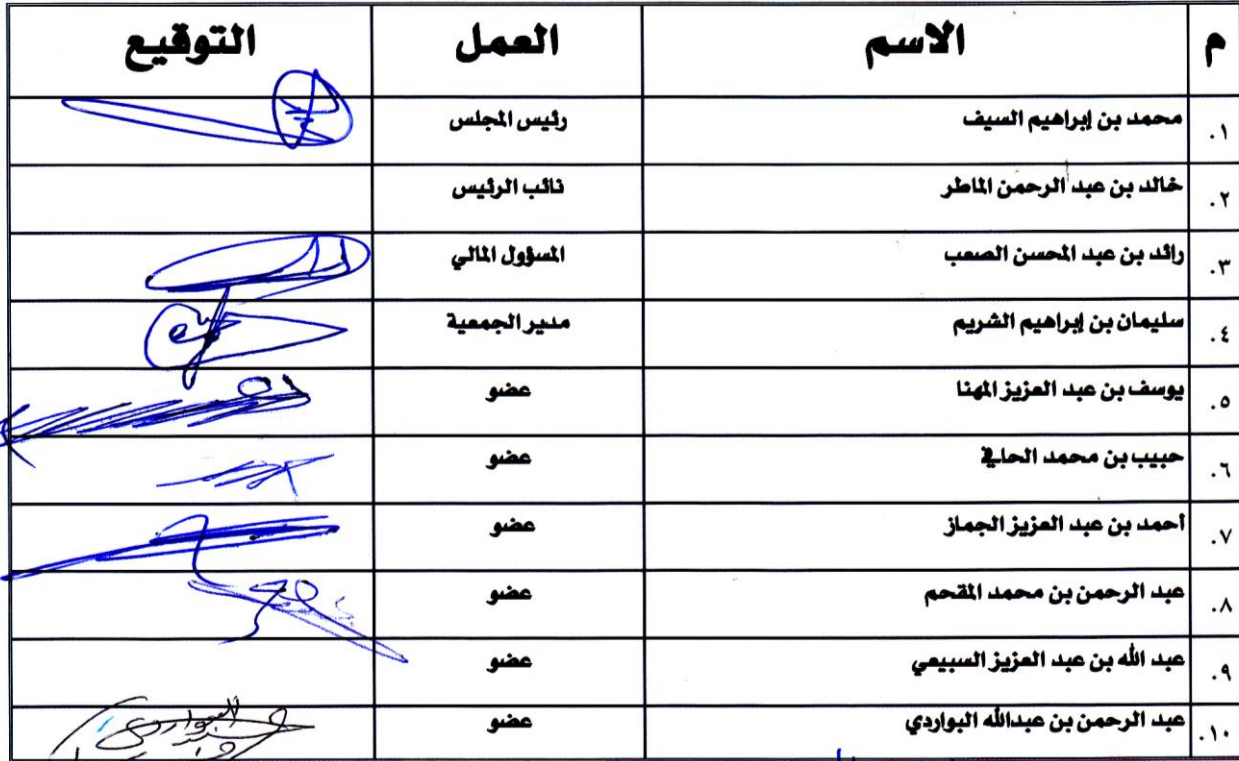 م الاسم العمل التوقيع
١. محمد بن إبراهيم السيف رئيس المجلس
٢. خالد بن عبد الرحمن الماطر نائب الرئيس
٣. رائد بن عبد المحسن الصعب المسؤول المالي
٤. سليمان بن إبراهيم الشريم مدير الجمعية
٥. يوسف بن عبد العزيز المهنا عضو
٦. حبيب بن محمد الحافي عضو
٧. أحمد بن عبد العزيز الجماز عضو
٨. عبد الرحمن بن محمد المقحم عضو
٩. عبد الله بن عبد العزيز السبيعي عضو
١٠. عبد الرحمن بن عبدالله البواردي عضو البواردي